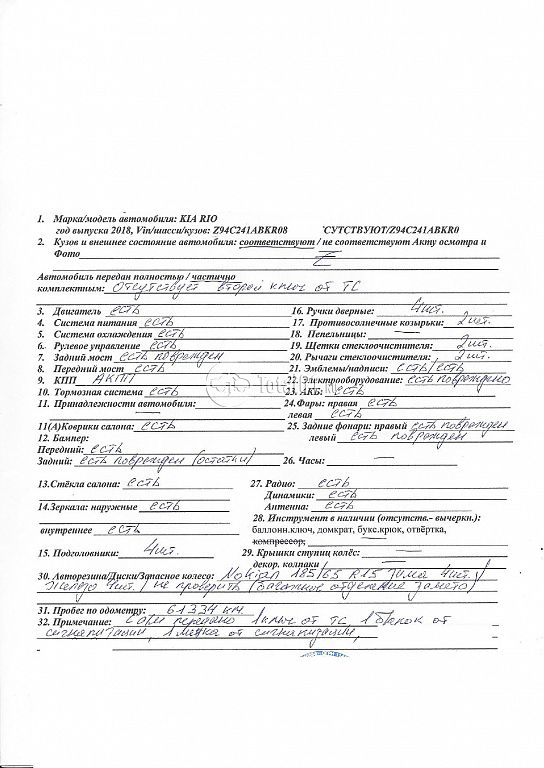 1. Марка/модель автомобиля: KIA RIO
год выпуска 2018, Vin/шасси/кузов: Z94C241ABKR08 СУТСТВУЮТ/Z94C241ABKR0
2. Кузов и внешнее состояние автомобиля: соответствуют / не соответствуют Акту осмотра и
Фото
Автомобиль передан полностью / частично
комплектным: Отсутствует второй ключ от ТС
3. Двигатель есть
4. Система питания есть
5. Система охлаждения есть
6. Рулевое управление есть
7. Задний мост есть поврежден
8. Передний мост есть
9. КПП АКПП
10. Тормозная система есть
11. Принадлежности автомобиля:
11(А)Коврики салона: есть
12. Бампер:
Передний: есть
Задний: есть поврежден (остатки)
13.Стёкла салона: есть
14.Зеркала: наружные есть
внутреннее есть
15. Подголовники: 4шт.
16. Ручки дверные: 4шт.
17. Противосолнечные козырьки: 2шт.
18. Пепельницы: —
19. Щетки стеклоочистителя: 2шт.
20. Рычаги стеклоочистителя: 2шт.
21. Эмблемы/надписи: есть/есть
22. Электрооборудование: есть повреждено
23. АКБ: есть
24.Фары: правая есть
левая есть
25. Задние фонари: правый есть поврежден
левый есть поврежден
26. Часы: —
27. Радио: есть
Динамики: есть
Антенна: есть
28. Инструмент в наличии (отсутств.- вычеркн.):
баллонн.ключ, домкрат, букс.крюк, отвёртка,
компрессор,
29. Крышки ступиц колёс: —
декор. колпаки
30. Авторезина/Диски/Запасное колесо: Nokian 185/65 R15 зима 4шт./
железо 4шт./ не проверить (багажное отделение замято)
31. Пробег по одометру: 61334 км.
32. Примечание: передано 1ключ от ТС, 1 брелок от
сигнализации, 1 метка от сигнализации,